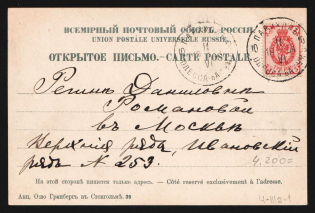 ВСЕМІРНЫЙ ПОЧТОВЫЙ СОЮЗЪ. РОССІЯ.
UNION POSTALE UNIVERSELLE. RUSSIE.
ОТКРЫТОЕ ПИСЬМО.—CARTE POSTALE.
Даниловнѣ
Романовой
въ Москвѣ
Верхніе ряды, Ивановскій
рядъ № 253.
4.200=
На этой сторонѣ пишется только адресъ. — Côté réservé exclusivement à l'adresse.
Акц. Общ. Гранбергъ въ Стокгольмѣ.